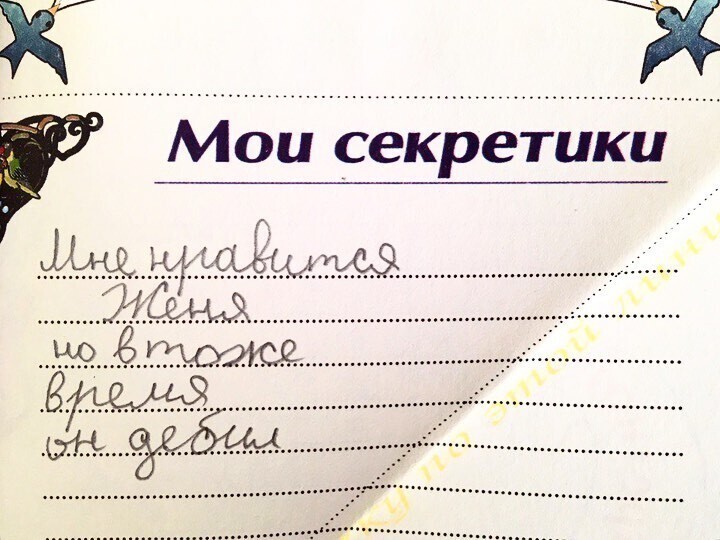 Мои секретики
Мне нравится
Женя
но в тоже
время
он дебил
ку по этой лини